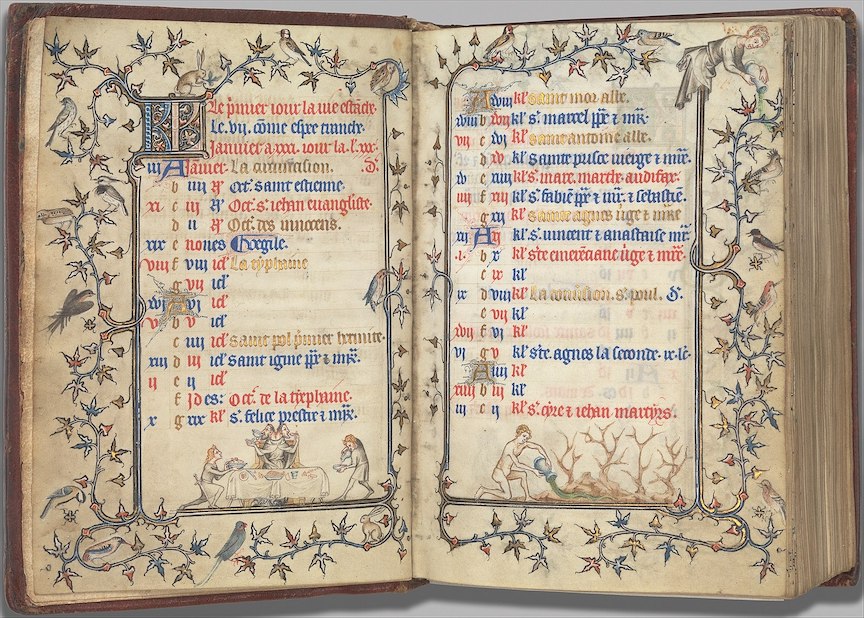 Le p̃mier iour la uie estra
Le .vij. cõme espee tranche
Januier a .xxxi. iour la .l. xxx.
iij A Januier. La circuncision. D.
b iiij Oct. saint estienne.
xi c iij Oct. s. iehan euuangliste.
d ij Oct. des innocens.
xix e nones Goegile.
viij f viij id La typhaine
g vij id
xvi A vi id
v b v id
c iiij id saint pol p̃mier hermite.
xiij d iij id saint igine ppe z mr̃.
ij e ij id
f Ides: Oct. de la typhaine.
x g xix kl s. felice prestre z mr̃.
A xviij kl saint mor abbe.
xviij b xvij kl s. marcel ppe z mr̃.
vij c xvi kl saint antoine abbe.
d xv kl sainte prisce uierge z mr̃e.
xv e xiiij kl s. mare. marthe audifax.
iiij f xiij kl s. fabiẽ ppe z mr̃. z sebastiẽ.
g xij kl sainte agnes uige z mr̃e
xij A xi kl s. uincent z anastaise mr̃.
.i. b x kl ste emerẽciane uige z mr̃e.
c ix kl
ix d viij kl La conusion. s. poul. D.
e vij kl
xvij f vi kl
vi g v kl ste. agnes la seconde.
A iiij kl
xiiij b iij kl
iij c ij kl s. cyre z iehan martyrs.